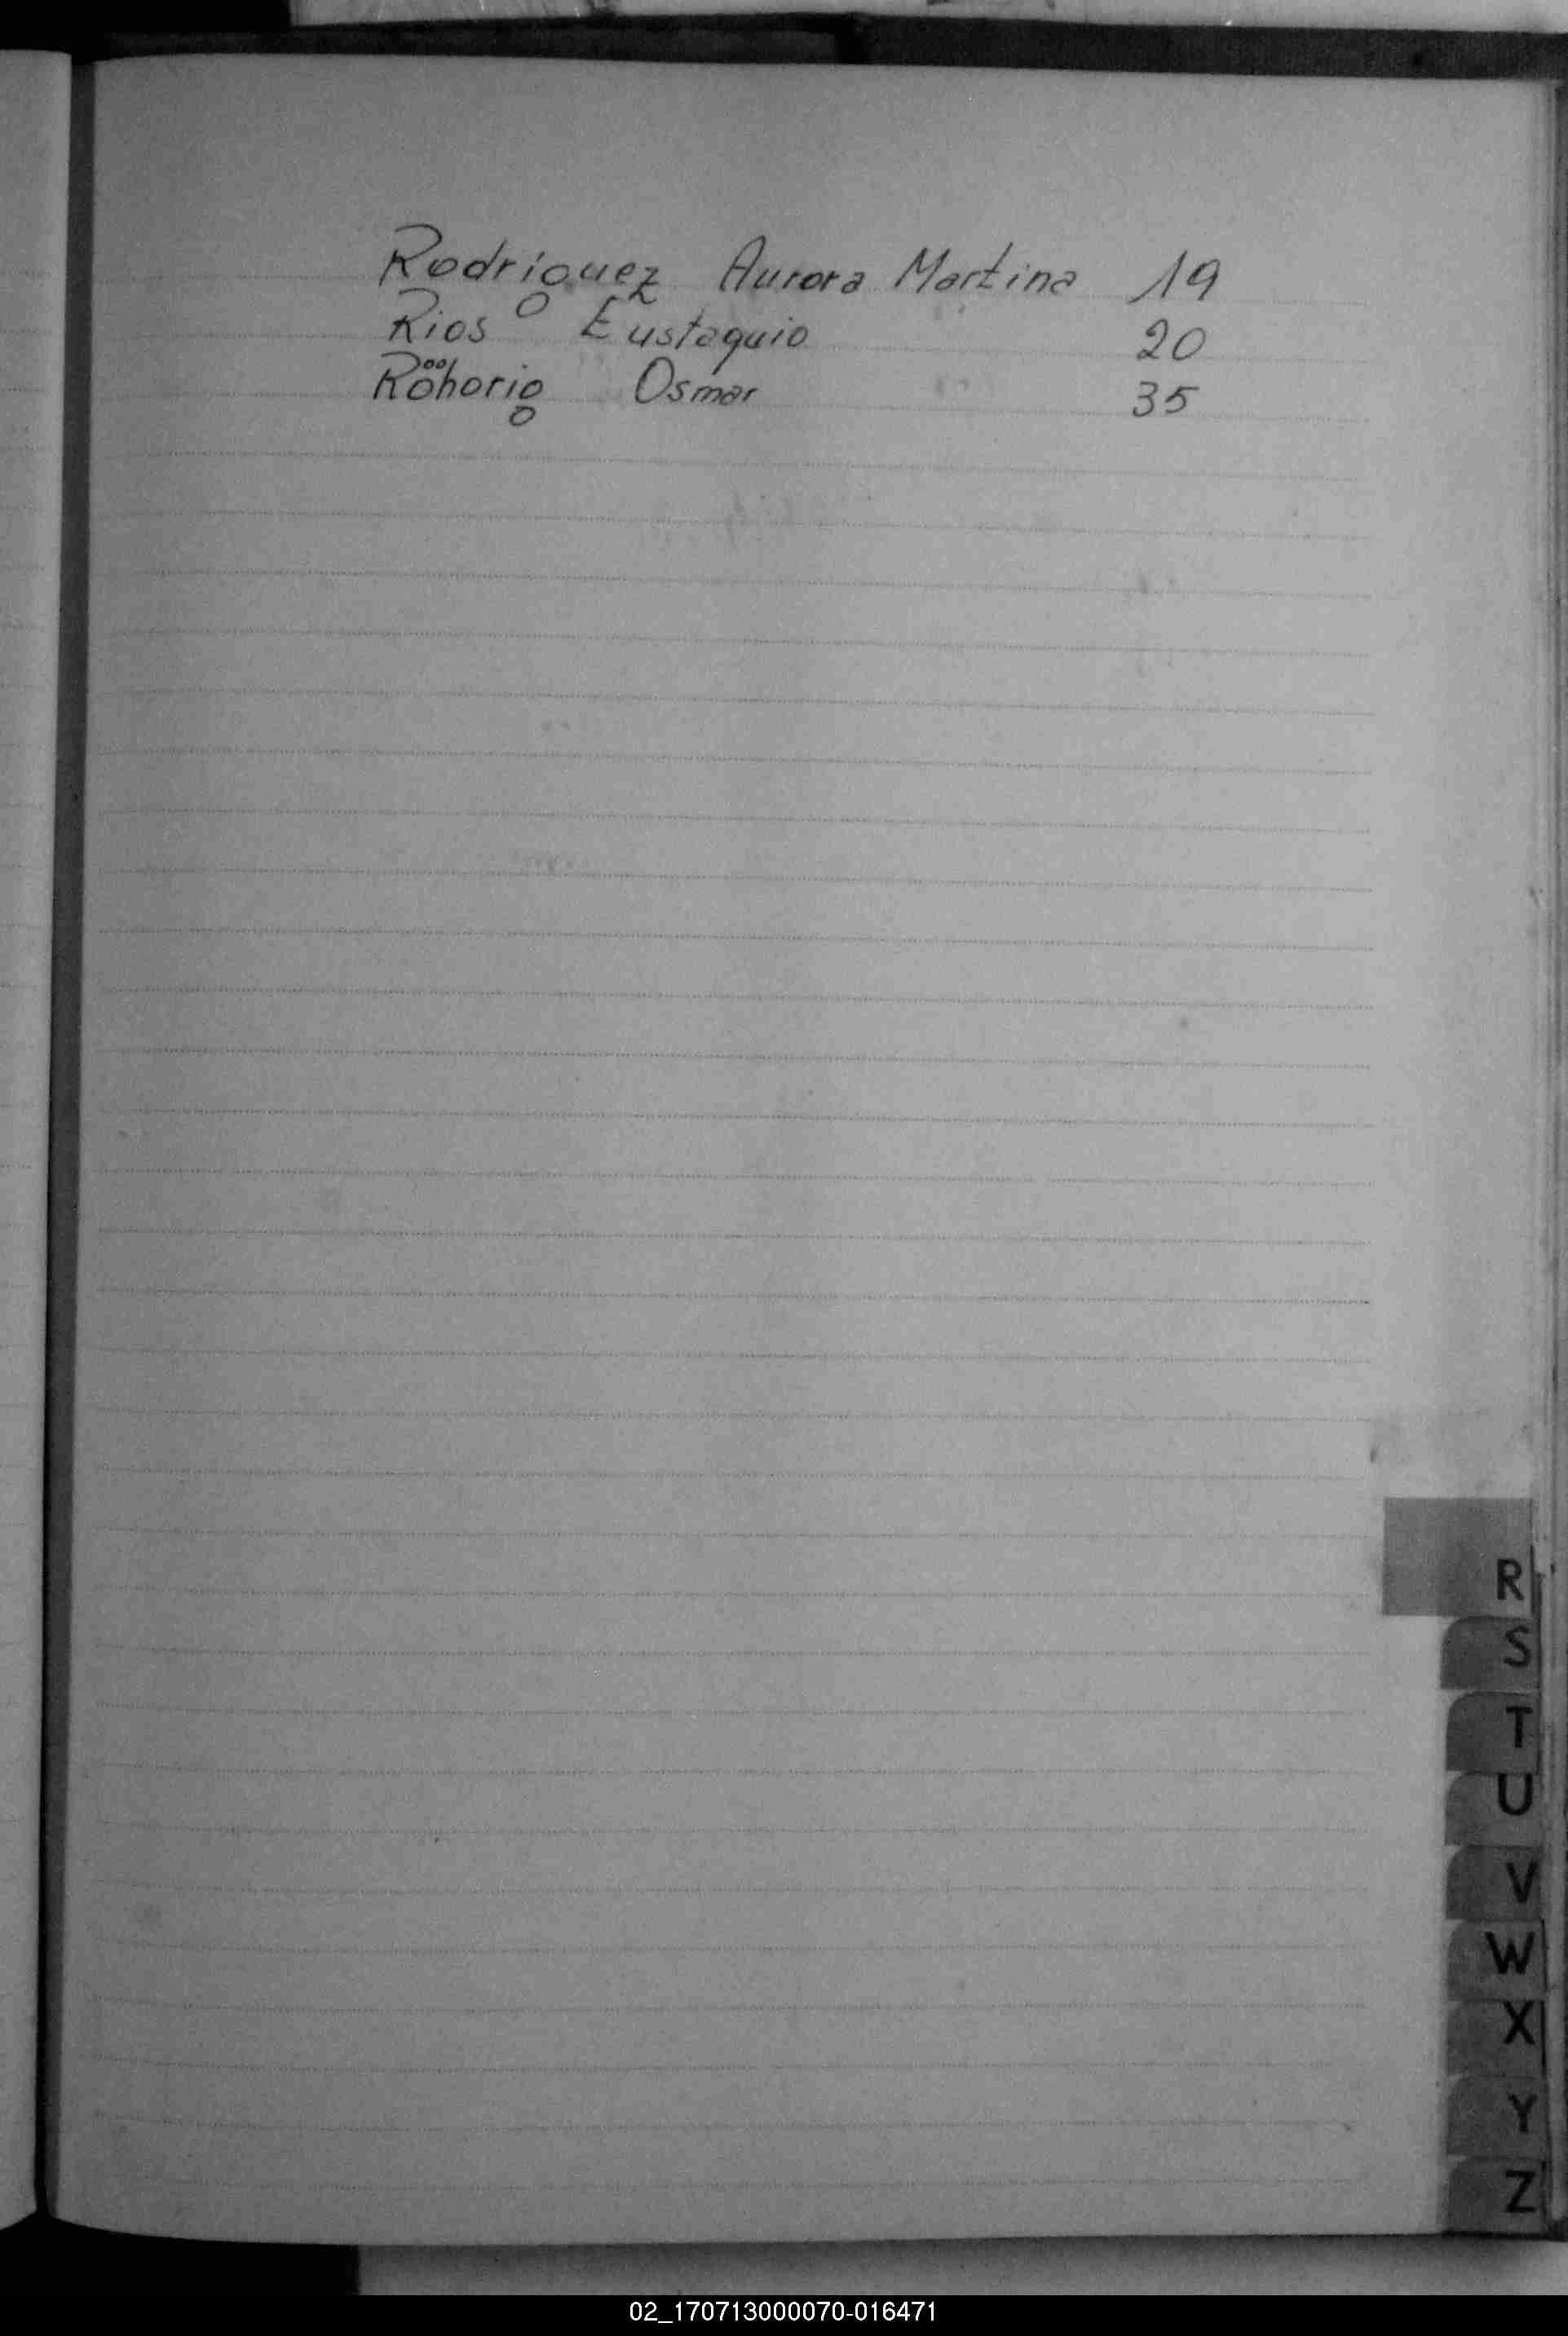 Rodriguez Aurora Martina 19
Rios Eustaquio 20
Röhorig Osmar 35
R
S
T
U
V
W
X
Y
Z
02_170713000070-016471